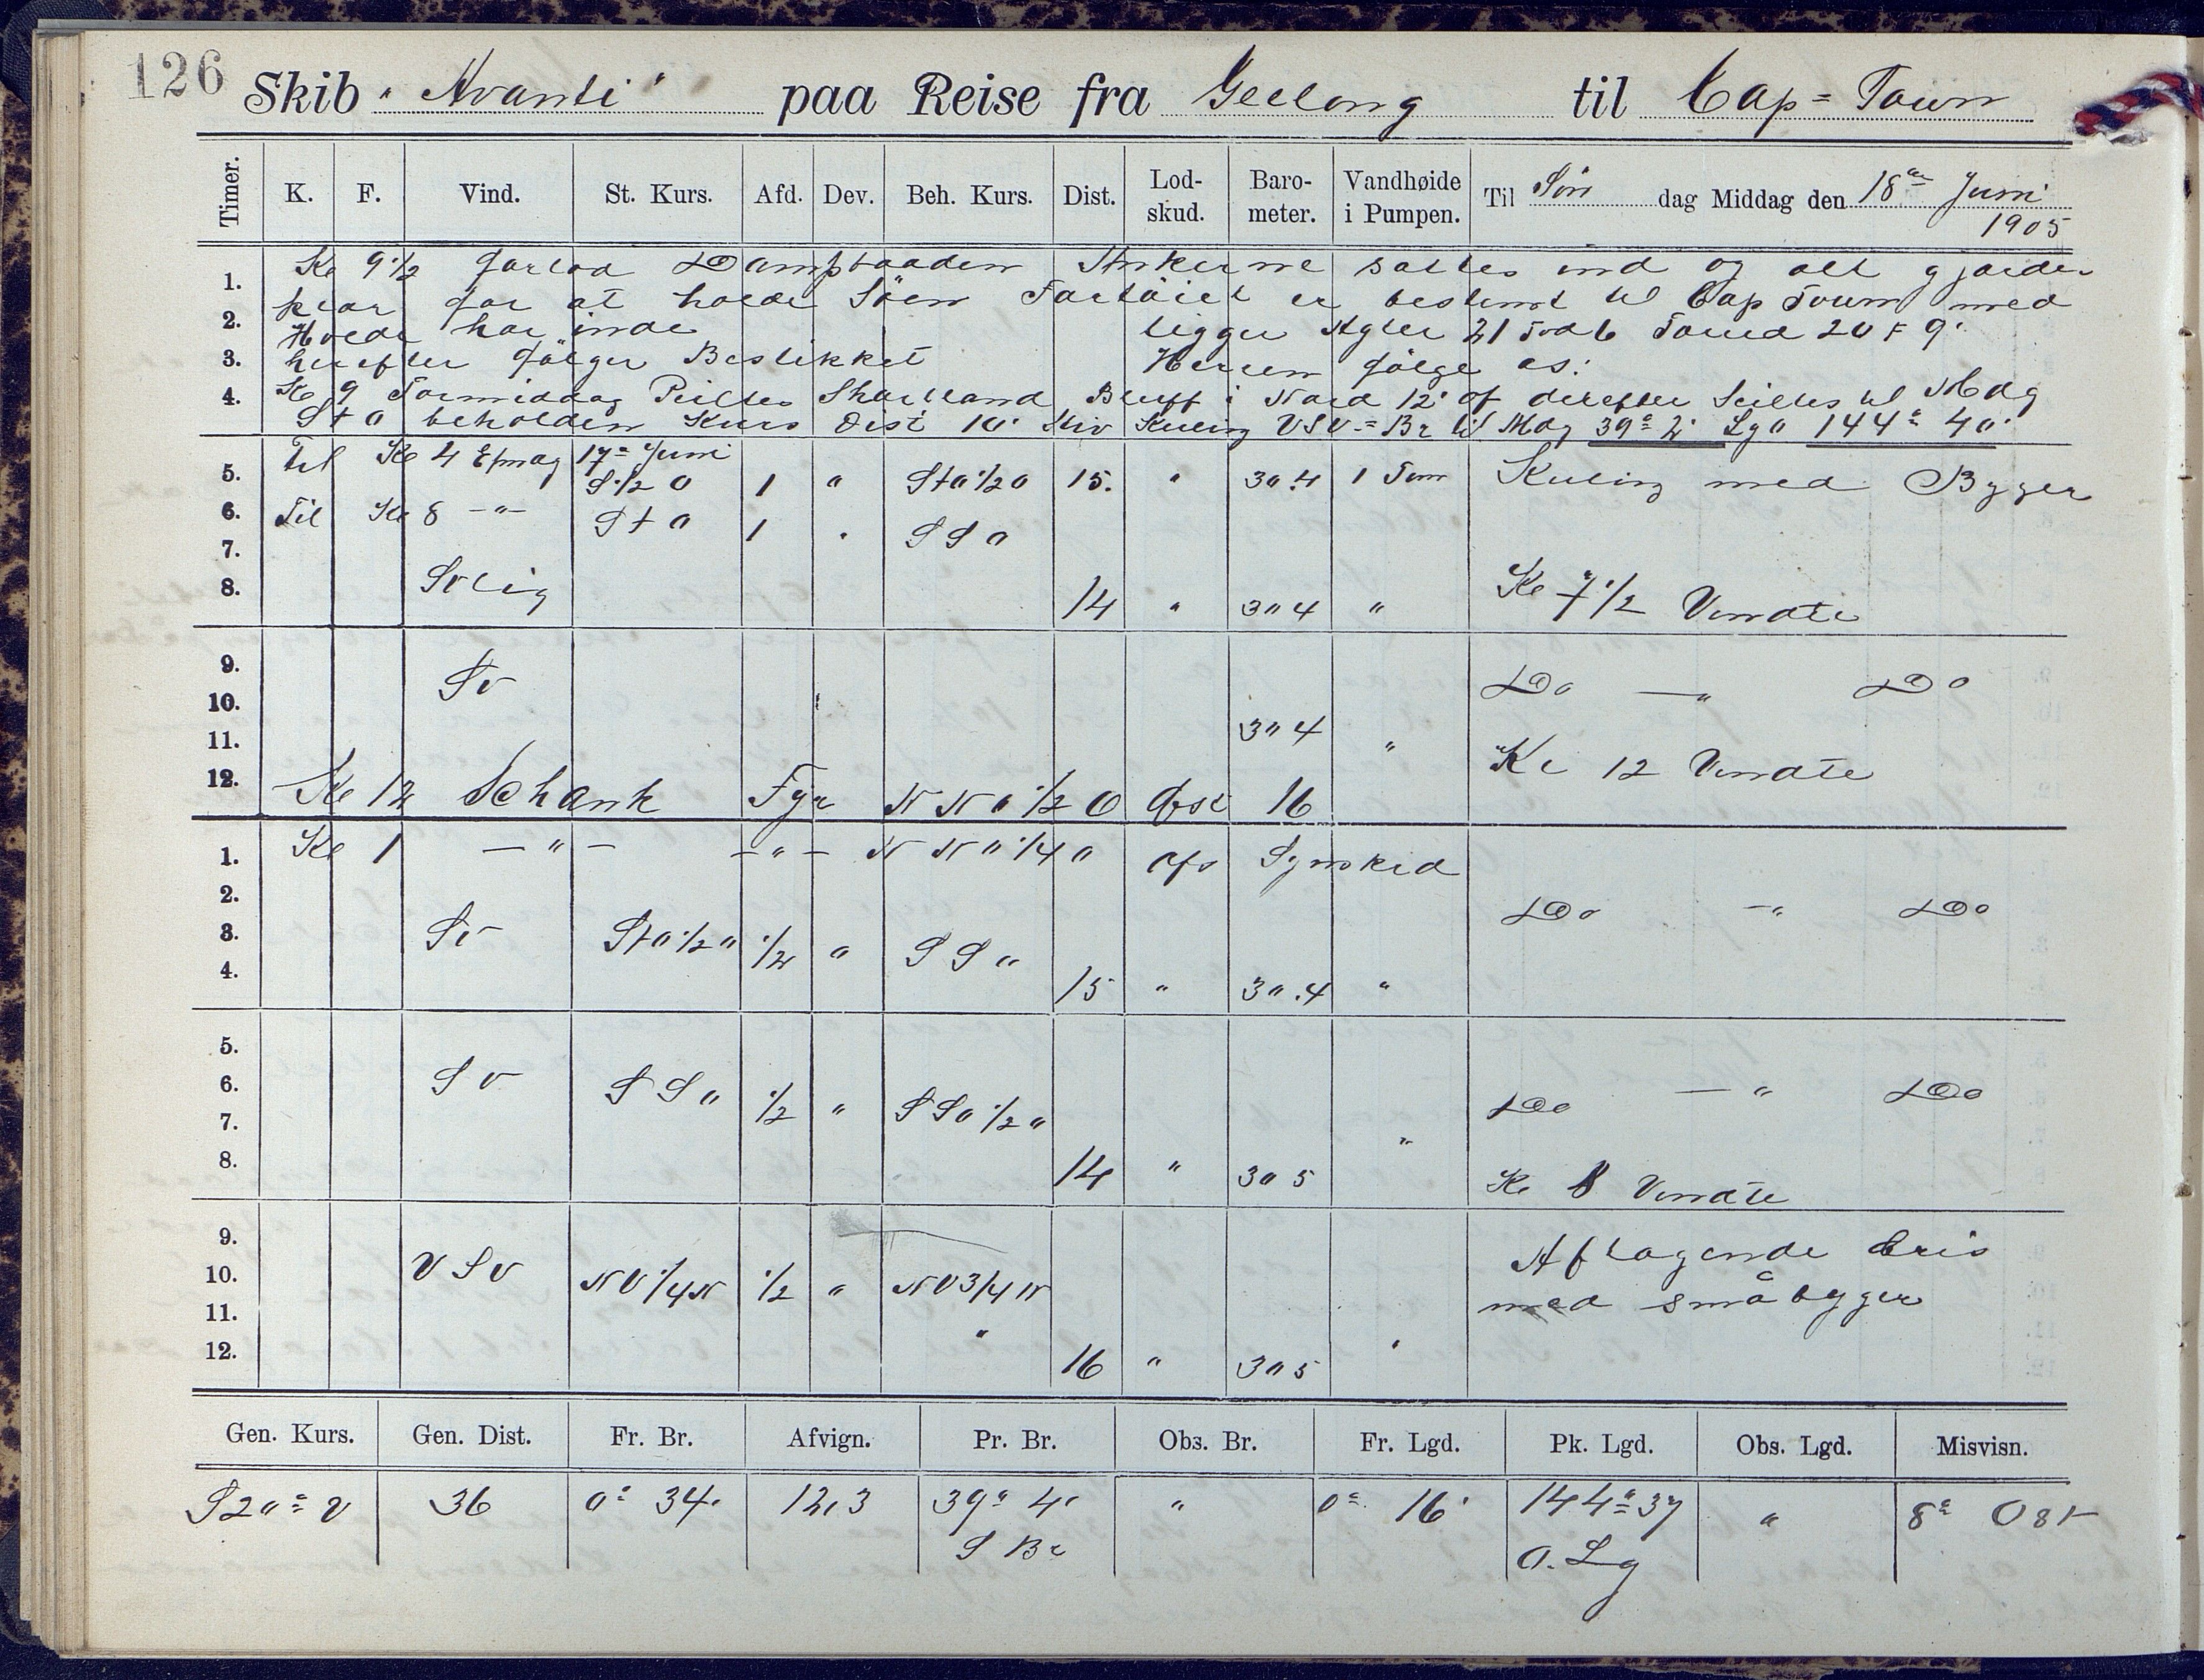 126
Skib "Avanti" paa Reise fra Geelong til Cap=Town
Timer. K. F. Vind. St. Kurs. Afd. Dev. Beh. Kurs. Dist. Lod-skud. Baro-meter. Vandhøide i Pumpen. Til Søn dag Middag den 18de Juni 1905
1. Kl 9 1/2 forlod Dampbaaden Ankerne sattes ind og alt gjordes
2. klar for at holde Söen Fartöiet er bestemt til Cap Town med
Hvede har inde ligger Agter 21 Fod 6 Forud 20 F 9"
3. herefter fölger Bestikket Herren fölge os!
4. Kl 9 Formiddag Peiltes Shortland Bluff i Nord 12' af derefter Seiltes til Mdg
StO beholden Kurs Dist 10' Stiv Kuling VSV= Br til Mdg 39° 2' Lg O 144° 40'
Til Kl 4 Efmdg 17= Juni
5. S 1/2 O 1 " StO 1/2 O 15. " 30.4 1 Tom Kuling med Byger
6. Til Kl 8 -"- StO 1 " SSO
7.
8. Svlig 14 " 30 4 " Kl 7 1/2 Vendte
9. Sv Do -"- Do
10.
11. 30 4 " Kl 12 Vendte
12. Kl 12 Schank Fyr NNO 1/2 O Afst 16
1. Kl 1 -"- -"- NNO 1/4 O afs Synskred
2. Do -"- Do
3. Sv StO 1/2 O 1/2 " SSO
4. 15 " 30.4 "
5.
6. SV SSO 1/2 " SSO 1/2 O Do -"- Do
7. "
8. 14 " 30 5 Kl 8 Vendte
9. Aftagende bris
10. VSV NV 1/4 N 1/2 " NV 3/4 N med småbyger
11. "
12. 16 " 30 5 "
Gen. Kurs. Gen. Dist. Fr. Br. Afvign. Pr. Br. Obs. Br. Fr. Lgd. Pk. Lgd. Obs. Lgd. Misvisn.
S20°V 36 0° 34' 12,3 39° 4' " 0° 16' 144° 37 " 8° Ost
S Br O. Lg